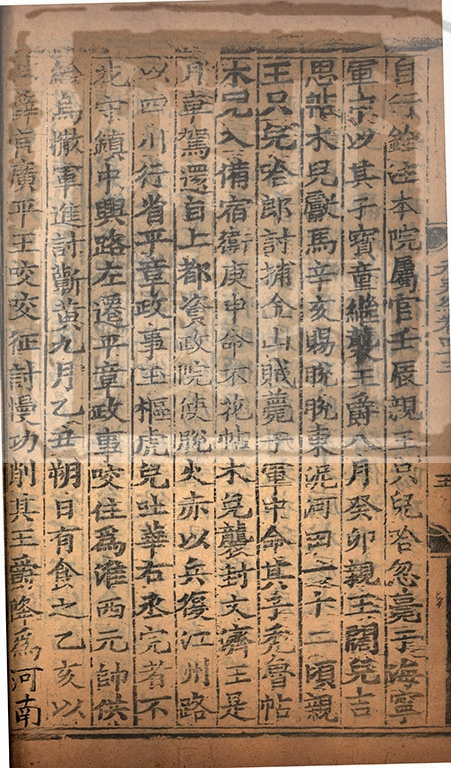 自行銓注本院屬官壬辰親王只兒哈忽薨于海寧
軍中以其子寶童繼襲王爵八月癸卯親王闊兒吉
思帖木兒獻馬辛亥賜脫脫東泥河田一十二頃親
王只兒哈郎討捕金山賊薨于軍中命其子禿魯帖
木兒入備宿衛庚申命不花帖木兒襲封文濟王是
月車駕還自上都資政院使脫火赤以兵復江州路
以四川行省平章政事玉樞虎兒吐華右丞完者不
花守鎮中興路左遷平章政事咬住為淮西元帥供
給烏撒軍進討蘄黃九月乙丑朔日有食之乙亥以
怯薛官廣平王咬咬征討慢功削其王爵降為河南
五